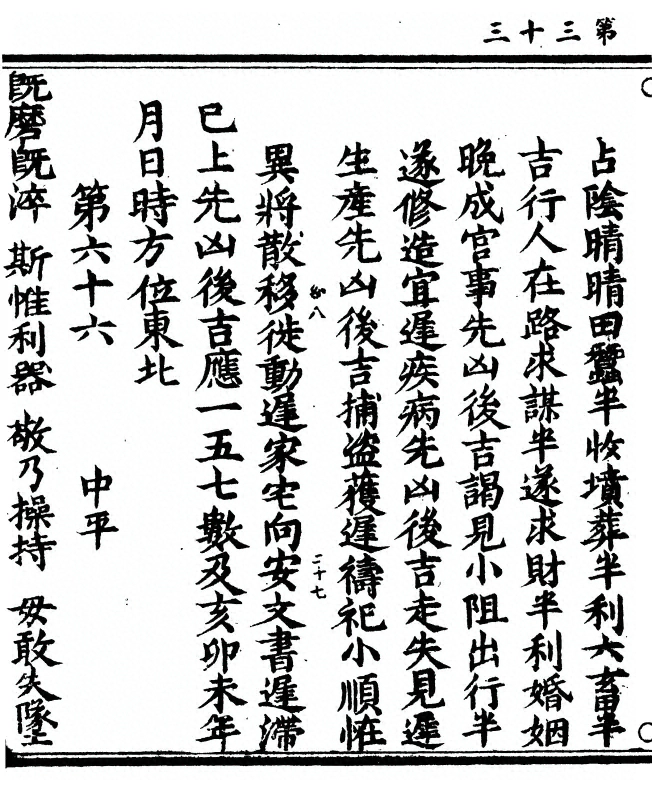 第三十三
占陰晴晴田蠶半收墳葬半利六畜半
吉行人在路求謀半遂求財半利婚姻
晚成官事先凶後吉謁見小阻出行半
遂修造宜遲疾病先凶後吉走失見遲
生產先凶後吉捕盜獲遲禱祀小順恠
八
二十七
異將散移徙動遲家宅向安文書遲滯
已上先凶後吉應一五七數及亥卯未年
月日時方位東北
第六十六 中平
既磨既淬 斯惟利器 敬乃操持 毋敢失墜